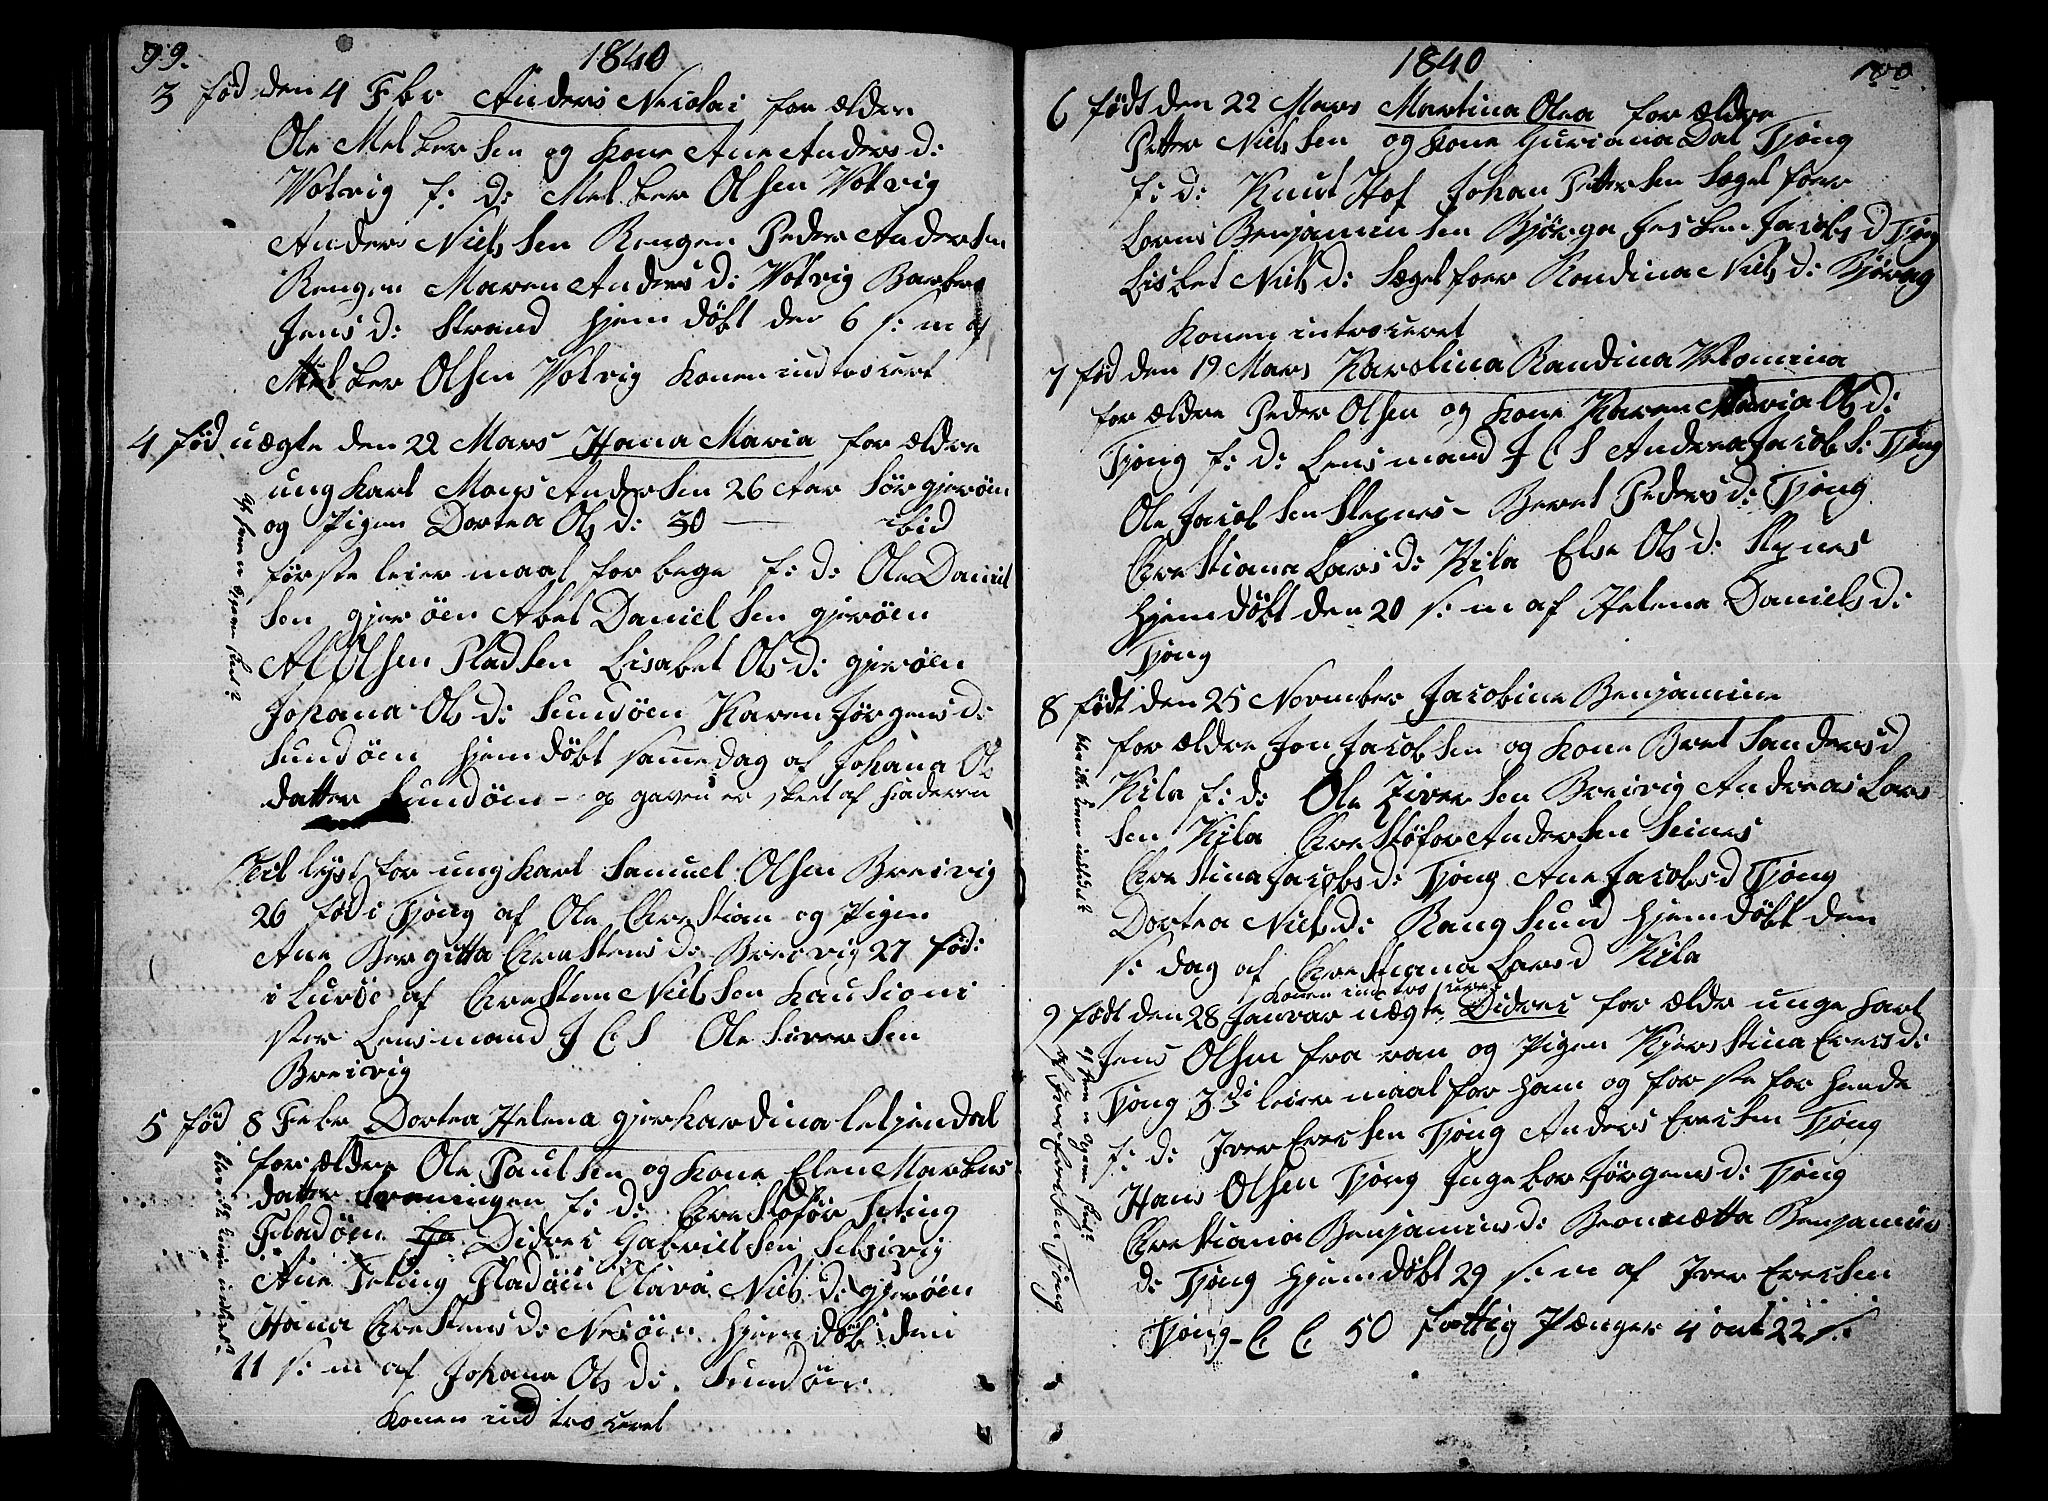 99.
1840
3 fød den 4 Fbr Anders Nicolai for ældre
Ole Melkersen og Kone Ane Anders d:
Votvig f: d: Melker Olsen Votvig
Anders Niels Sen Rengen Peder Andersen
Rengen Maren Anders d: Votvig Barbra
Jens d: Strand hjem døbt den 6 s: m af
Melker Olsen Votvig Konen introceret
4 fød uægte den 22 Mars Hana Maria for ældre
ung Karl Mons Andersen 26 Aar Sørgjerøen
og Pigen Dortea Ols d: 30 — ibid
første leiermaal for bege f: d: Ole Daniel
Sen gjerøen Abel Daniel Sen gjerøen
Al Olsen Pladsen Lisabet Ols d: gjerøen
Johana Ols d: Sundøen Karen Jørgens d:
Sundøen hjem døbt samme dag af Johana Ols
datter Sundøen - opgaven er skeet af Faderen
Til lyst for ung Karl Samuel Olsen Breivig
26 fød i Tjong af Ole Chrestian og Pigen
Ane Bergitta Chrestens d: Breivig 27 fød:
i Lurøe af Chresten Niels Sen Kautioni
ster Lensmand J C S Ole Siversen
Breivig
5 fød 8 Febr Dortea Helena gjerhardina leljendal
for ældre Ole Paulsen og Kone Elen Markus
datter f: d: Chrestofør Feting
Fladøen Didrec Gabriel Sen Selsivig
Ane Feting Fladøen Clara Niels d: gjerøen
Hana Chrestens d: Nesøen hjem døbt den
11 s: m af Johana Ols d: Sundøen
Konen introceret
1840
100
6 født den 22 Mars Martina Olea for ældre
Petter Niels Sen og Kone Guriana Dal Tjong
f: d: Knut Hof Johan Petter Sen Segelfoer
Lorns Benjamin Sen Bjørga Jesken Jacobs d Tjong
Lisbet Niels d: Segelfoer Rondina Niels d: Bjørag
Konen introceret
7 fød den 19 Mars Karolina Randina Velomina
for ældre Peder Olsen og Kone Karen Maria Ols d:
Tjong f: d: Lensmand J C S Andrea Jacobs d: Tjong
Ole Jacob Sen Slepnes - Beret Peders d: Tjong
Chrestiana Lars d: Kila Else Ols d: Slepnes
hjem døbt den 20 s: m af Helena Daniels d:
Tjong
8 født den 25 November Jacobine Benjamine
for ældre Jon Jacob Sen og Kone Bret Sanders d
Kila f: d: Ole Ziver Sen Breivig Andreas Lars
Sen Kila Chrestøfor Andersen Seines
Chrestina Jacobs d: Tjong Ane Jacobs d Tjong
Dortea Niels d: Rangsund hjem døbt den
s: dag af Chrestiana Lars d Kila
Konen introceret
9 født den 28 Janvar uægte Didrec for ældre unge Karl
Jens Olsen fra ran og Pigen Kjerstina Erecs d:
Tjong 3di leiermaal for ham og første for hende
f: d: Iver Erec Sen Tjong Anders Erec Sen Tjong
Hans Olsen Tjong Ingebor Jørgens d: Tjong
Chrestiana Benjamins d: Bronætta Benjamins
d: Tjong hjem døbt 29 s: m af Iver Erec Sen
Tjong - C C 50 fattig Penger 4 ort 22 s: